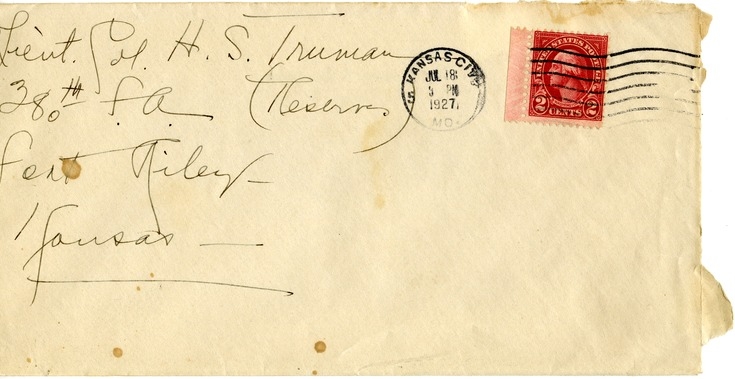 Lieut. Col. H. S. Truman
380th F.A. (Reserve)
Fort Riley
Kansas
KANSAS CITY
JUL 18
PM
1927
MO.
UNITED STATES POSTAGE
2 CENTS 2